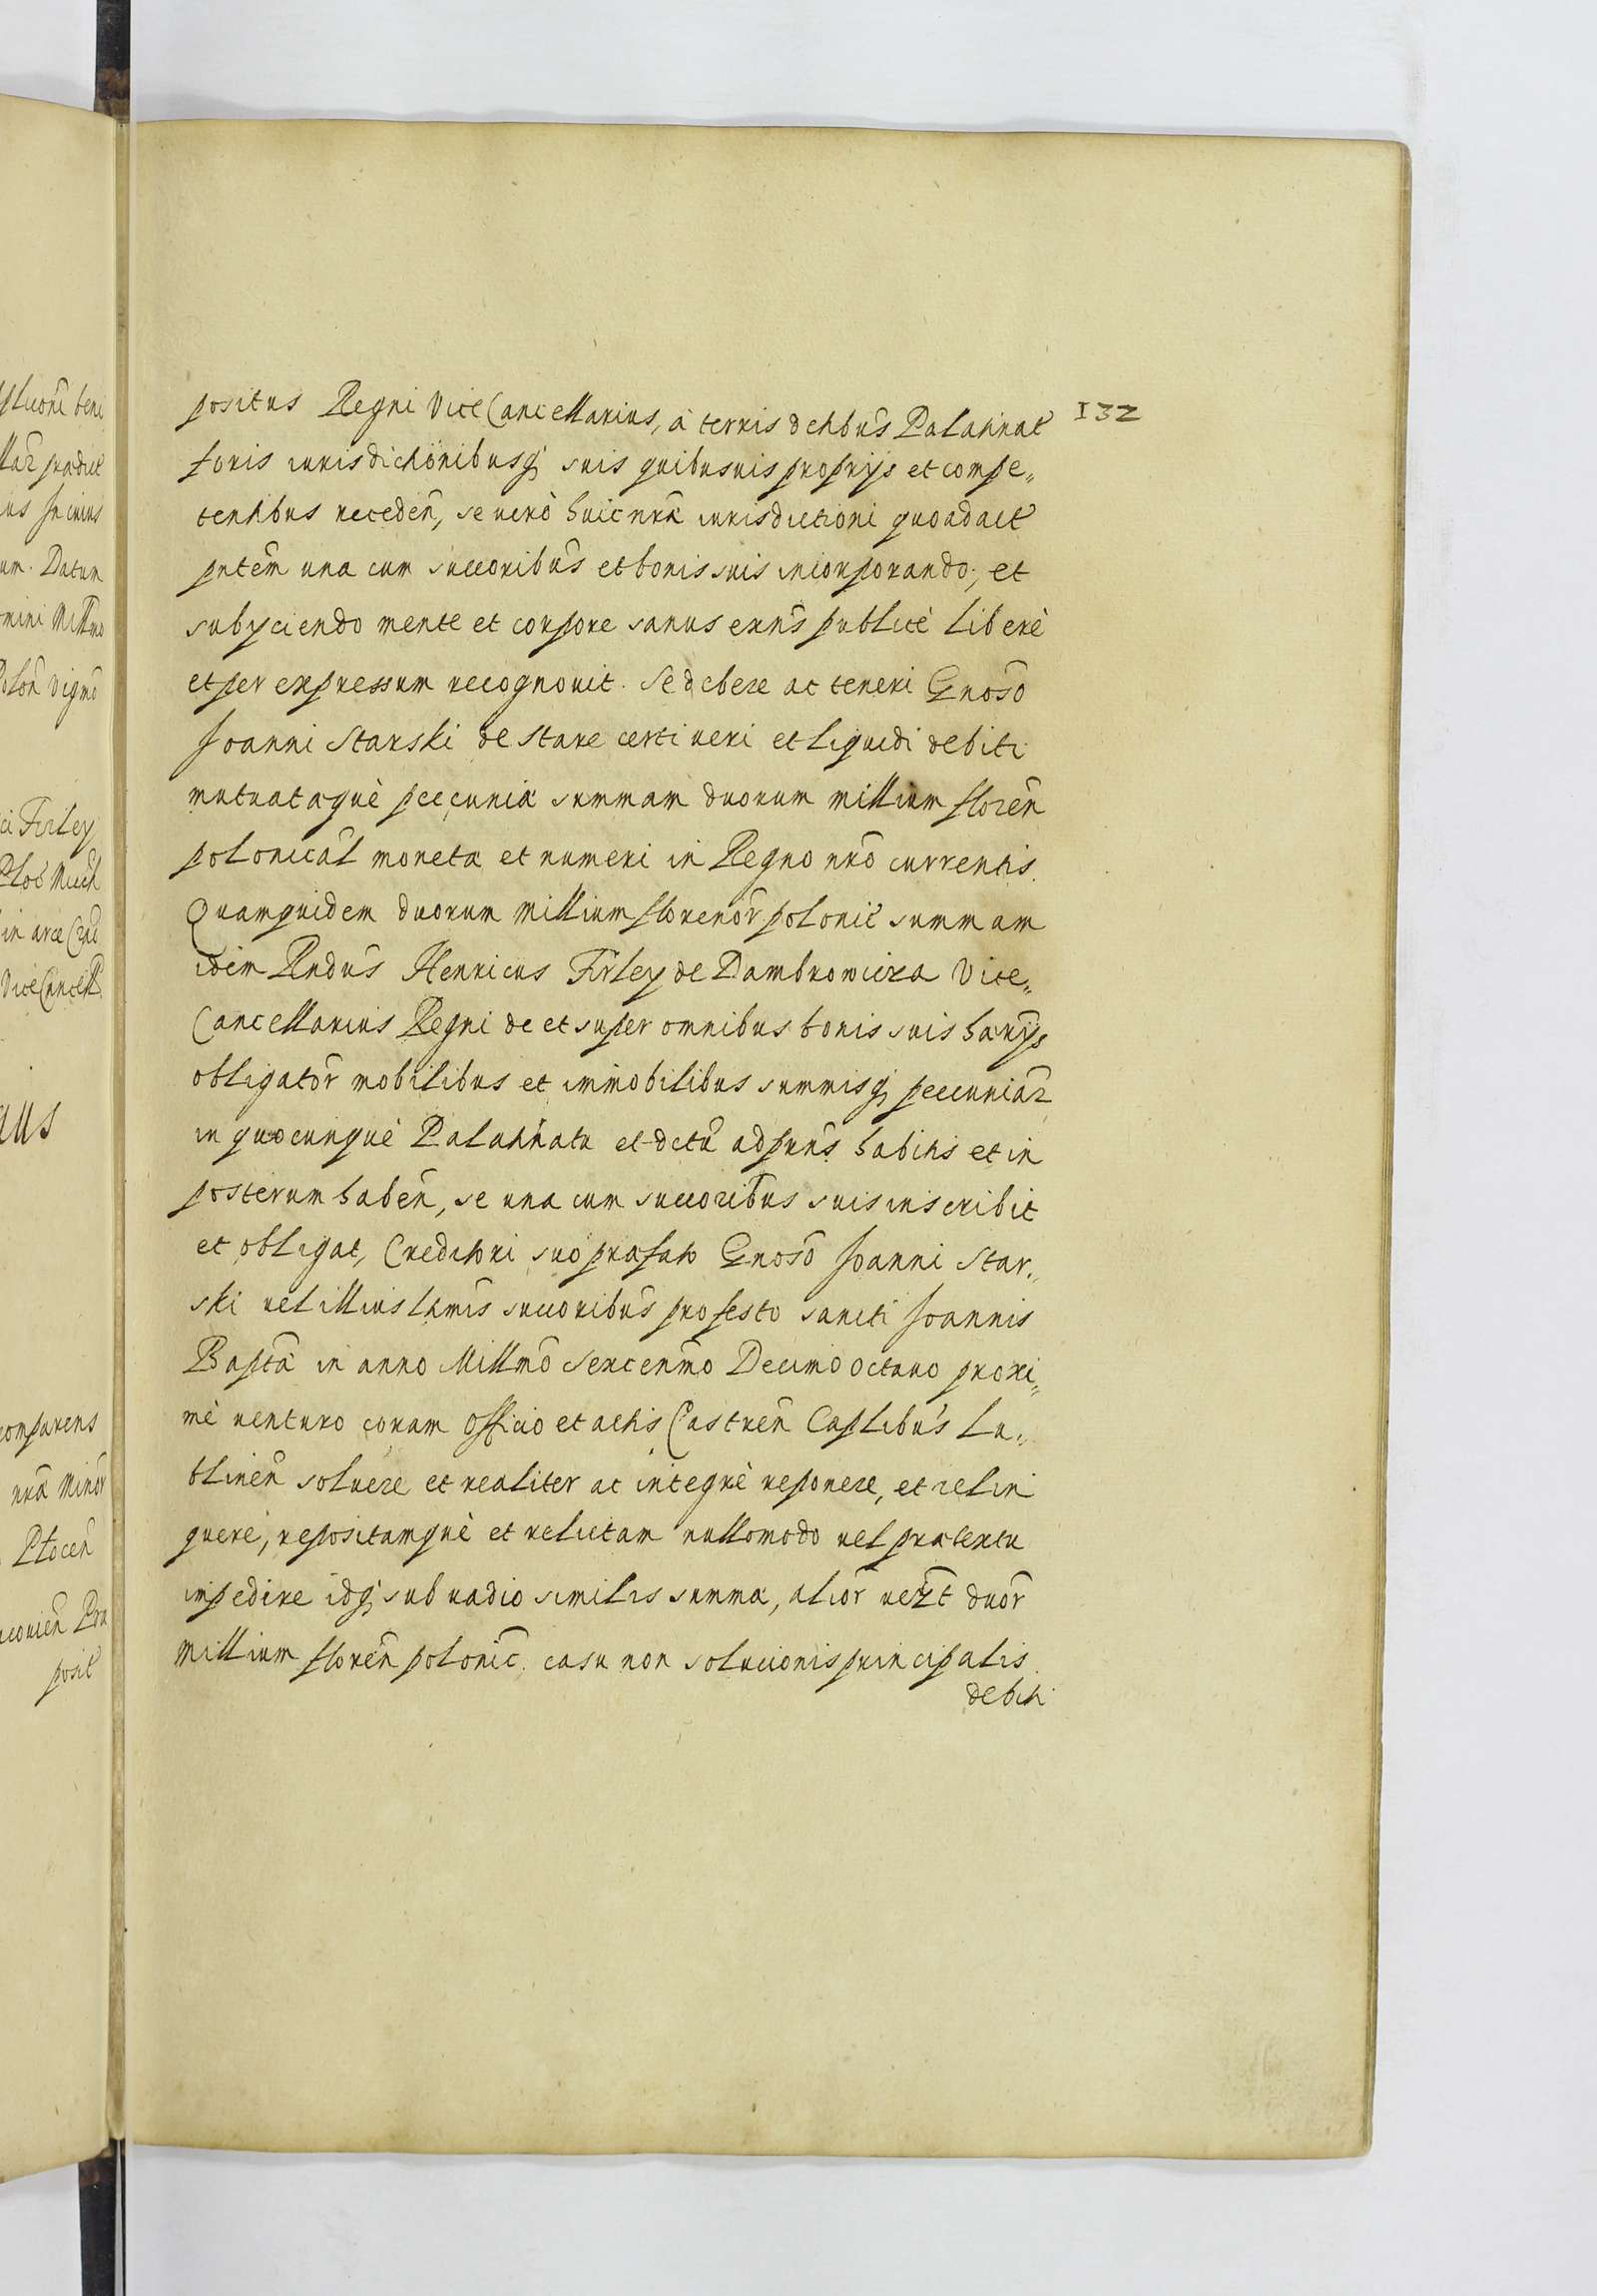 132
positus Regni ViceCancellarius, à terris dchbus Palatinat
foris iurisdictionibusq; suis quibusuis proprijs et compe„
tentibus receden̄, se uerò huic nr̃æ iurisdictioni quoad act̃
pñtem una cum succoribus et bonis suis incorporando, et
subyciendo mente et corpore sanus exñs publicè liberè
et per expressum recognouit. Se debere ac teneri Gnoso
Joanni Starski de Stare certi ueri et liquidi debiti
mutuatæquè peccuniæ summam duorum millium floren̄
polonical̃ monetæ et numeri in Regno nr̃o currentis.
Quamquidem duorum millium florenor̃ polonic̃ summam
idem Rndus Henricus Firley de Dambrowicza Vice„
Cancellarius Regni de et super omnibus bonis suis harijs
obligator̃ mobilibus et immobilibus summisq; peccuniar̃
in quocunquè Palatinatu et dctũ adpræns habitis et in
posterum haben̄, se una cum succoribus suis inscribit
et obligat, Creditori suo præfato Gnoso Joanni Star„
ski uel illius lamis succoribus pro festo sancti Joannis
Baptæ in anno Millmo Sexcenmo Decimo octauo proxi„
mè uenturo coram officio et actis Castren̄ Captibus Lu„
blinen̄ soluere et realiter ac integrè reponere, et relin
quere, repositamquè et relictam nullomodo uel prætextu
impedire idq; sub uadio similis summæ, alior̃ uerzt duor̃
Millium floren̄ polonic̃. casu non solucionis principalis
debiti